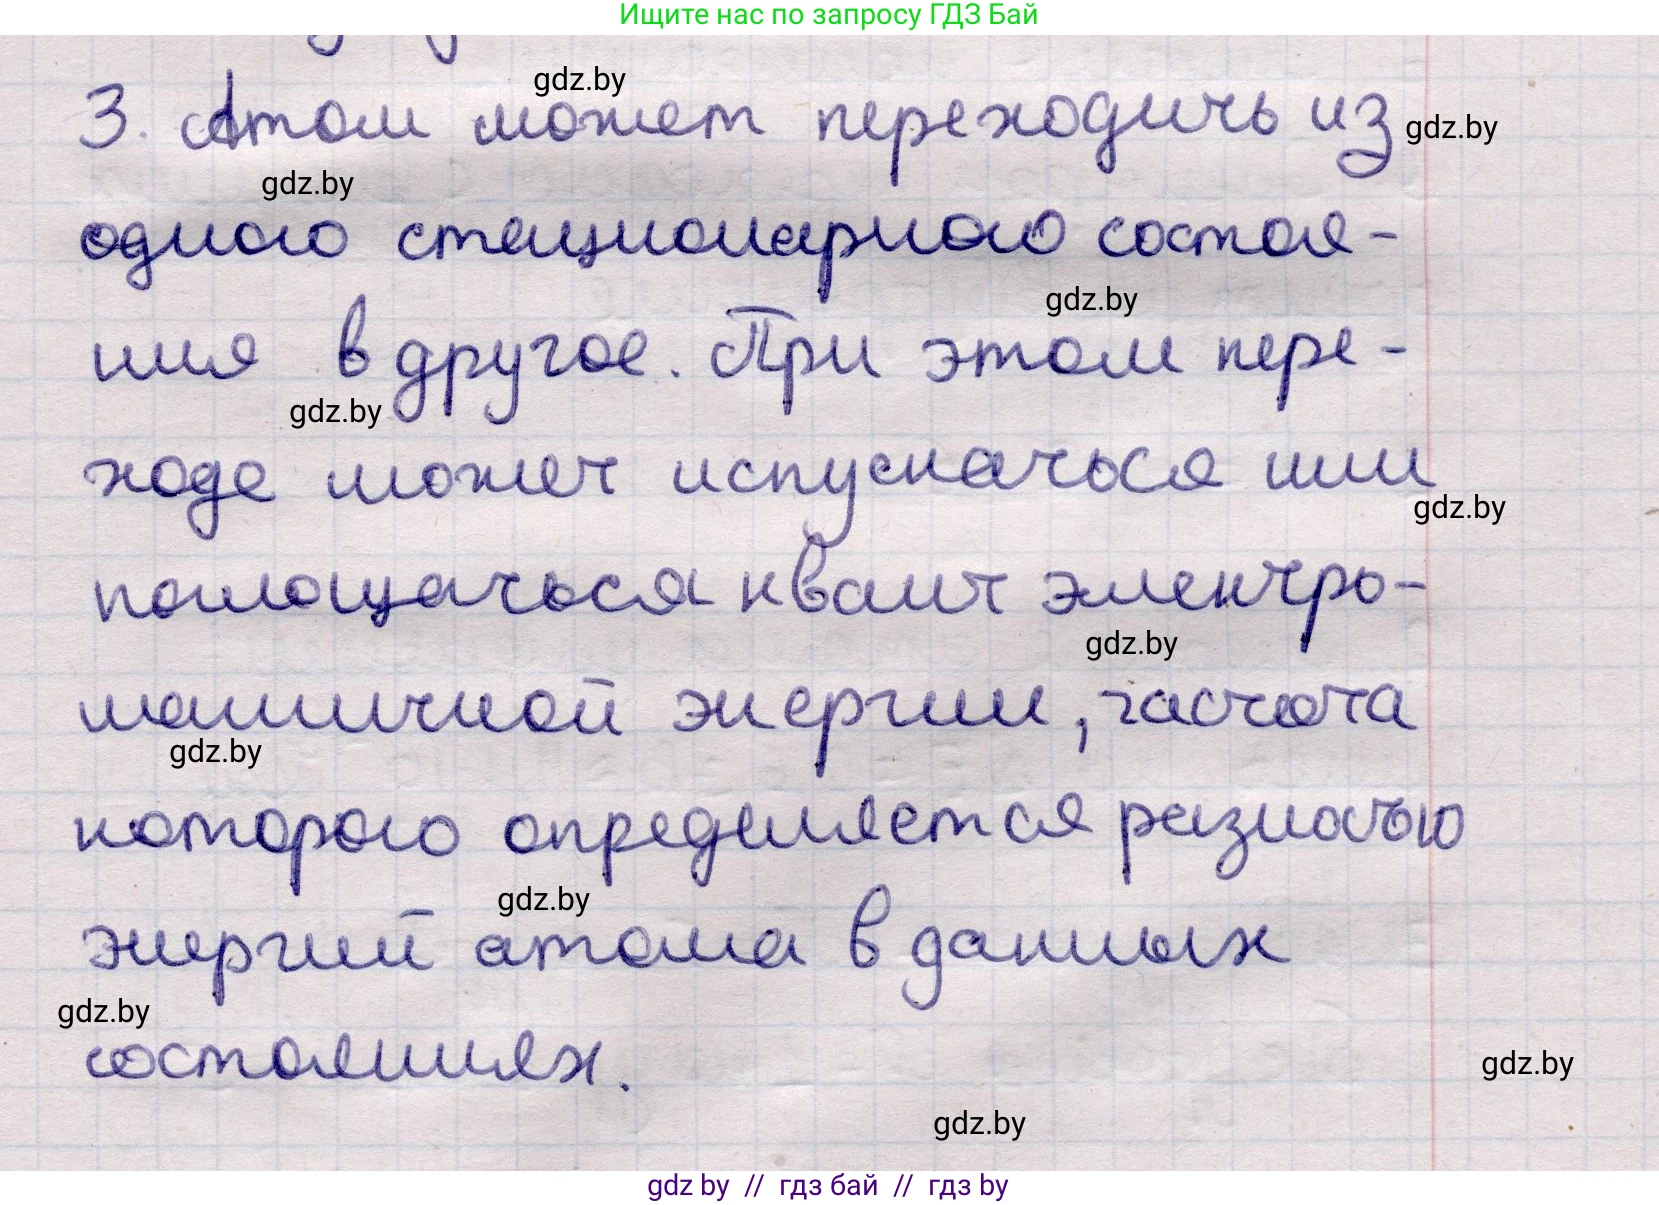 Ищите нас по запросу ГДЗ Бай
gdz.by
3. Атом может переходить из
gdz.by
gdz.by
одного стационарного состоя-
gdz.by
ния в другое. При этом пере-
gdz.by
ходе может испускаться или
gdz.by
поглощаться квант электро-
gdz.by
магнитной энергии, частота
gdz.by
которого определяется разностью
gdz.by
энергий атома в данных
gdz.by
состояниях.
gdz.by
gdz.by
gdz by // гдз бай // гдз by